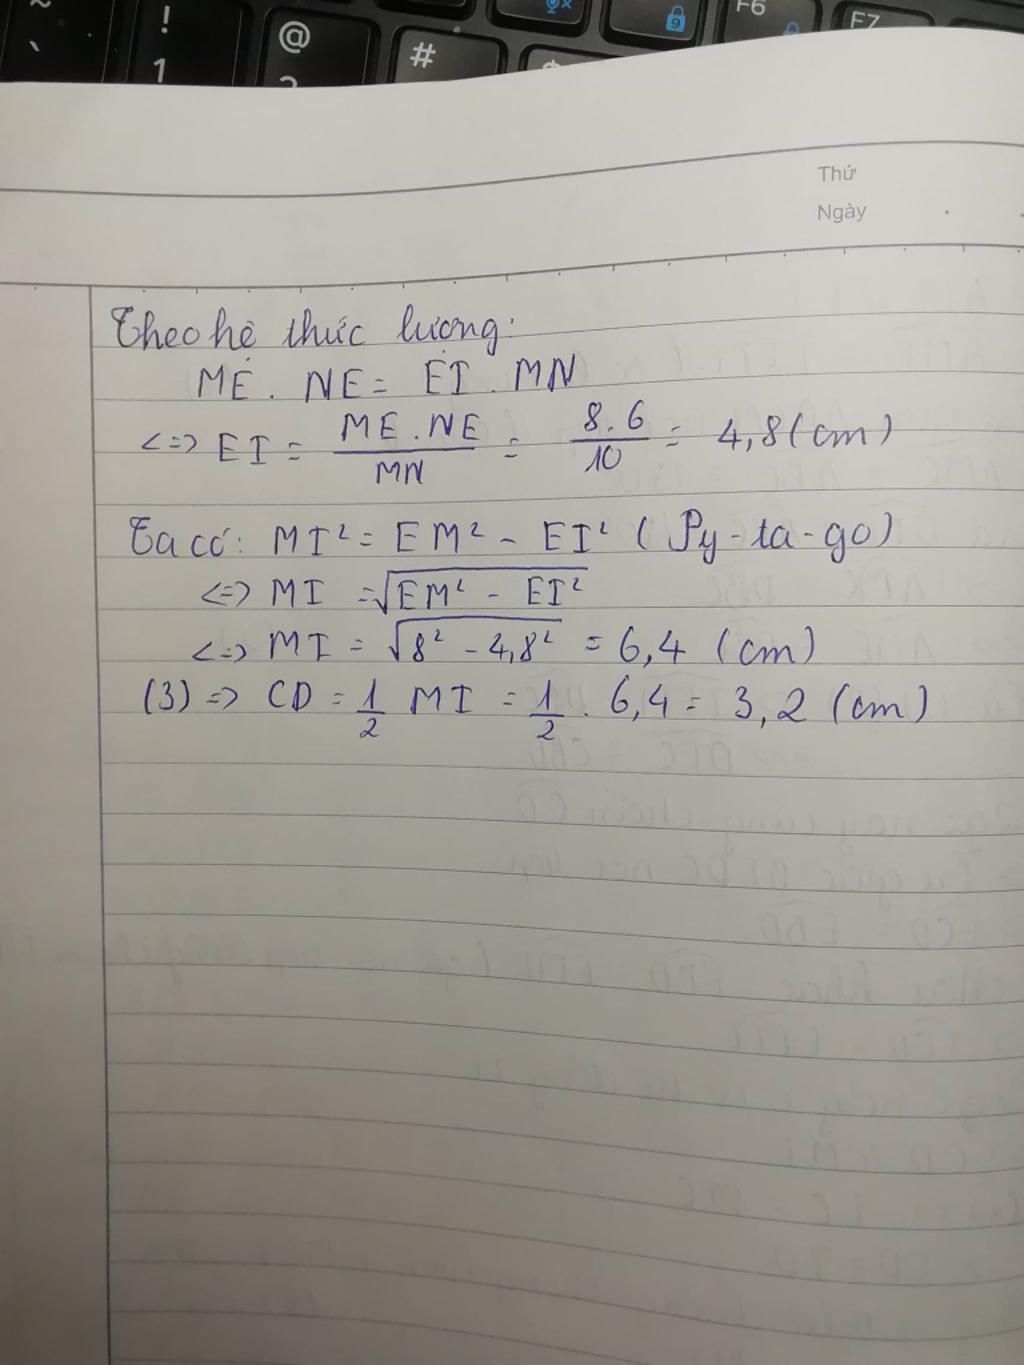 ~
`
!
1
@
2
#
$
9
F6
F7
Thứ
Ngày
Theo hệ thức lượng:
ME . NE = EI . MN
<=> EI = ME.NE / MN = 8.6 / 10 = 4,8 (cm)
Ta có: MI² = EM² - EI² (Py-ta-go)
<=> MI = √EM² - EI²
<=> MI = √8² - 4,8² = 6,4 (cm)
(3) => CD = 1/2 MI = 1/2 . 6,4 = 3,2 (cm)